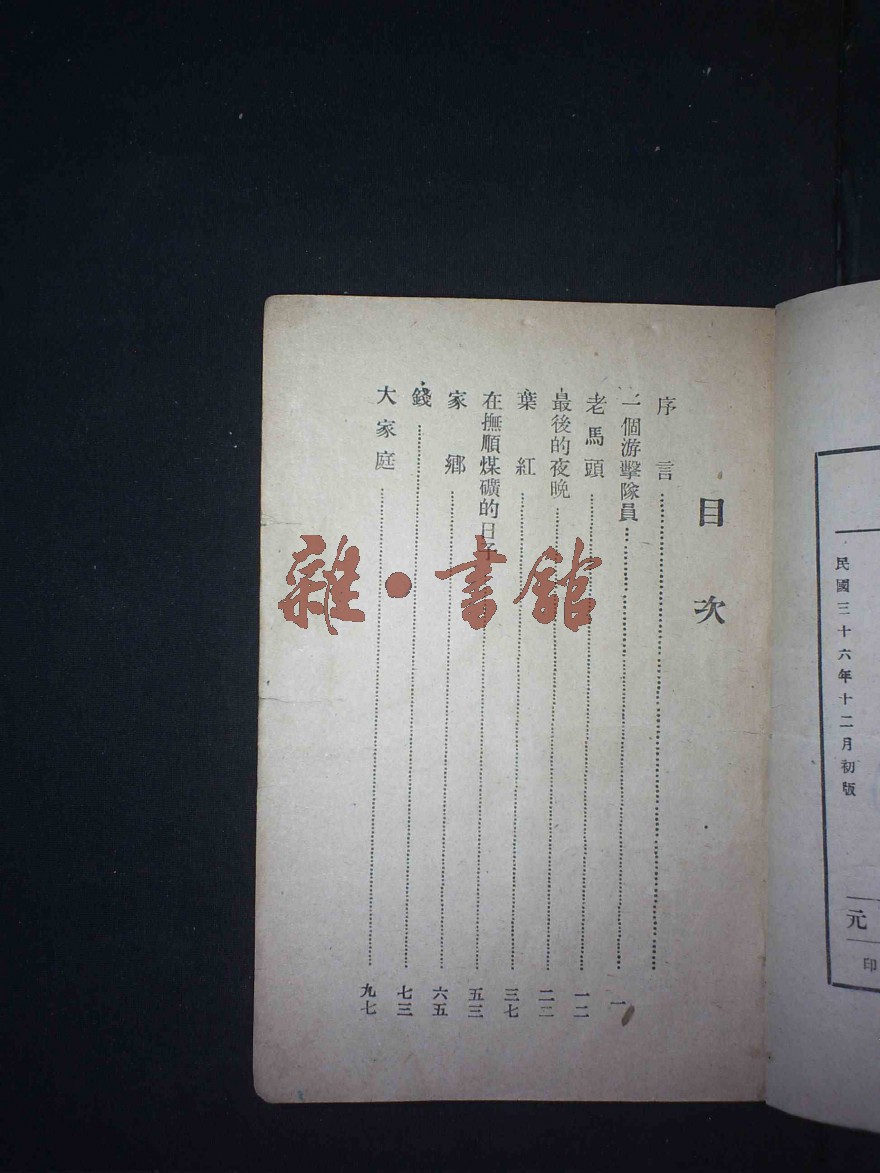 民國三十六年十二月初版
元
印
目次
序言
一個游擊隊員 一
老馬頭 一二
最後的夜晚 二二
葉紅 三七
在撫順煤礦的日子 五三
家鄉 六五
錢 七三
大家庭 九七
雜·書館